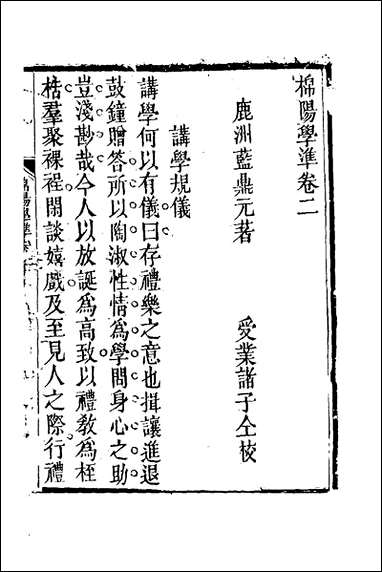 棉陽學準卷二
鹿洲藍鼎元著　受業諸子仝校
講學規儀
講學何以有儀曰存禮樂之意也揖讓進退
鼓鐘贈答所以陶淑性情為學問身心之助
豈淺尠哉今人以放誕為高致以禮教為桎
梏羣聚裸裎閒談嬉戲及至見人之際行禮